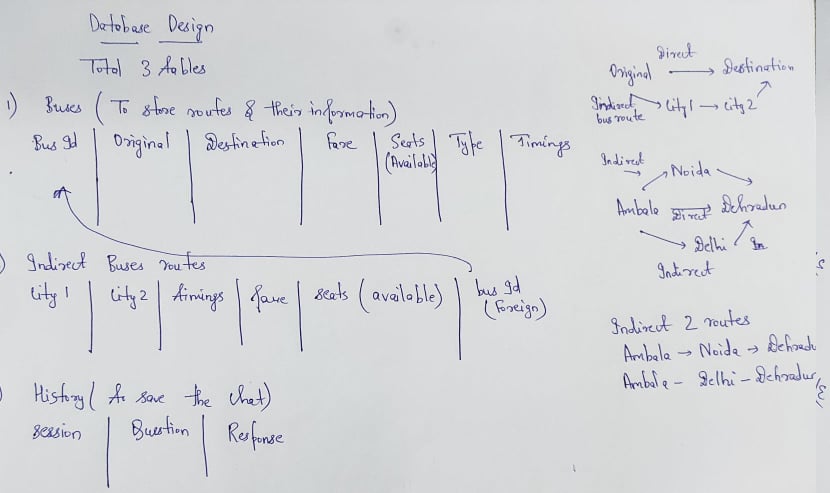 Database Design
Total 3 tables
1) Buses (To store routes & their information)
Bus Id | Original | Destination | Fare | Seats (Available) | Type | Timings
) Indirect Buses routes
City 1 | City 2 | timings | fare | seats (available) | bus Id (Foreign)
) History ( to save the chat)
session | Question | Response
Direct
Original → Destination
Indirect bus route → City 1 → City 2
Indirect
→ Noida
Ambala Direct → Dehradun
→ Delhi In
Indirect
Indirect 2 routes
Ambala → Noida → Dehradu
Ambala - Delhi - Dehradun